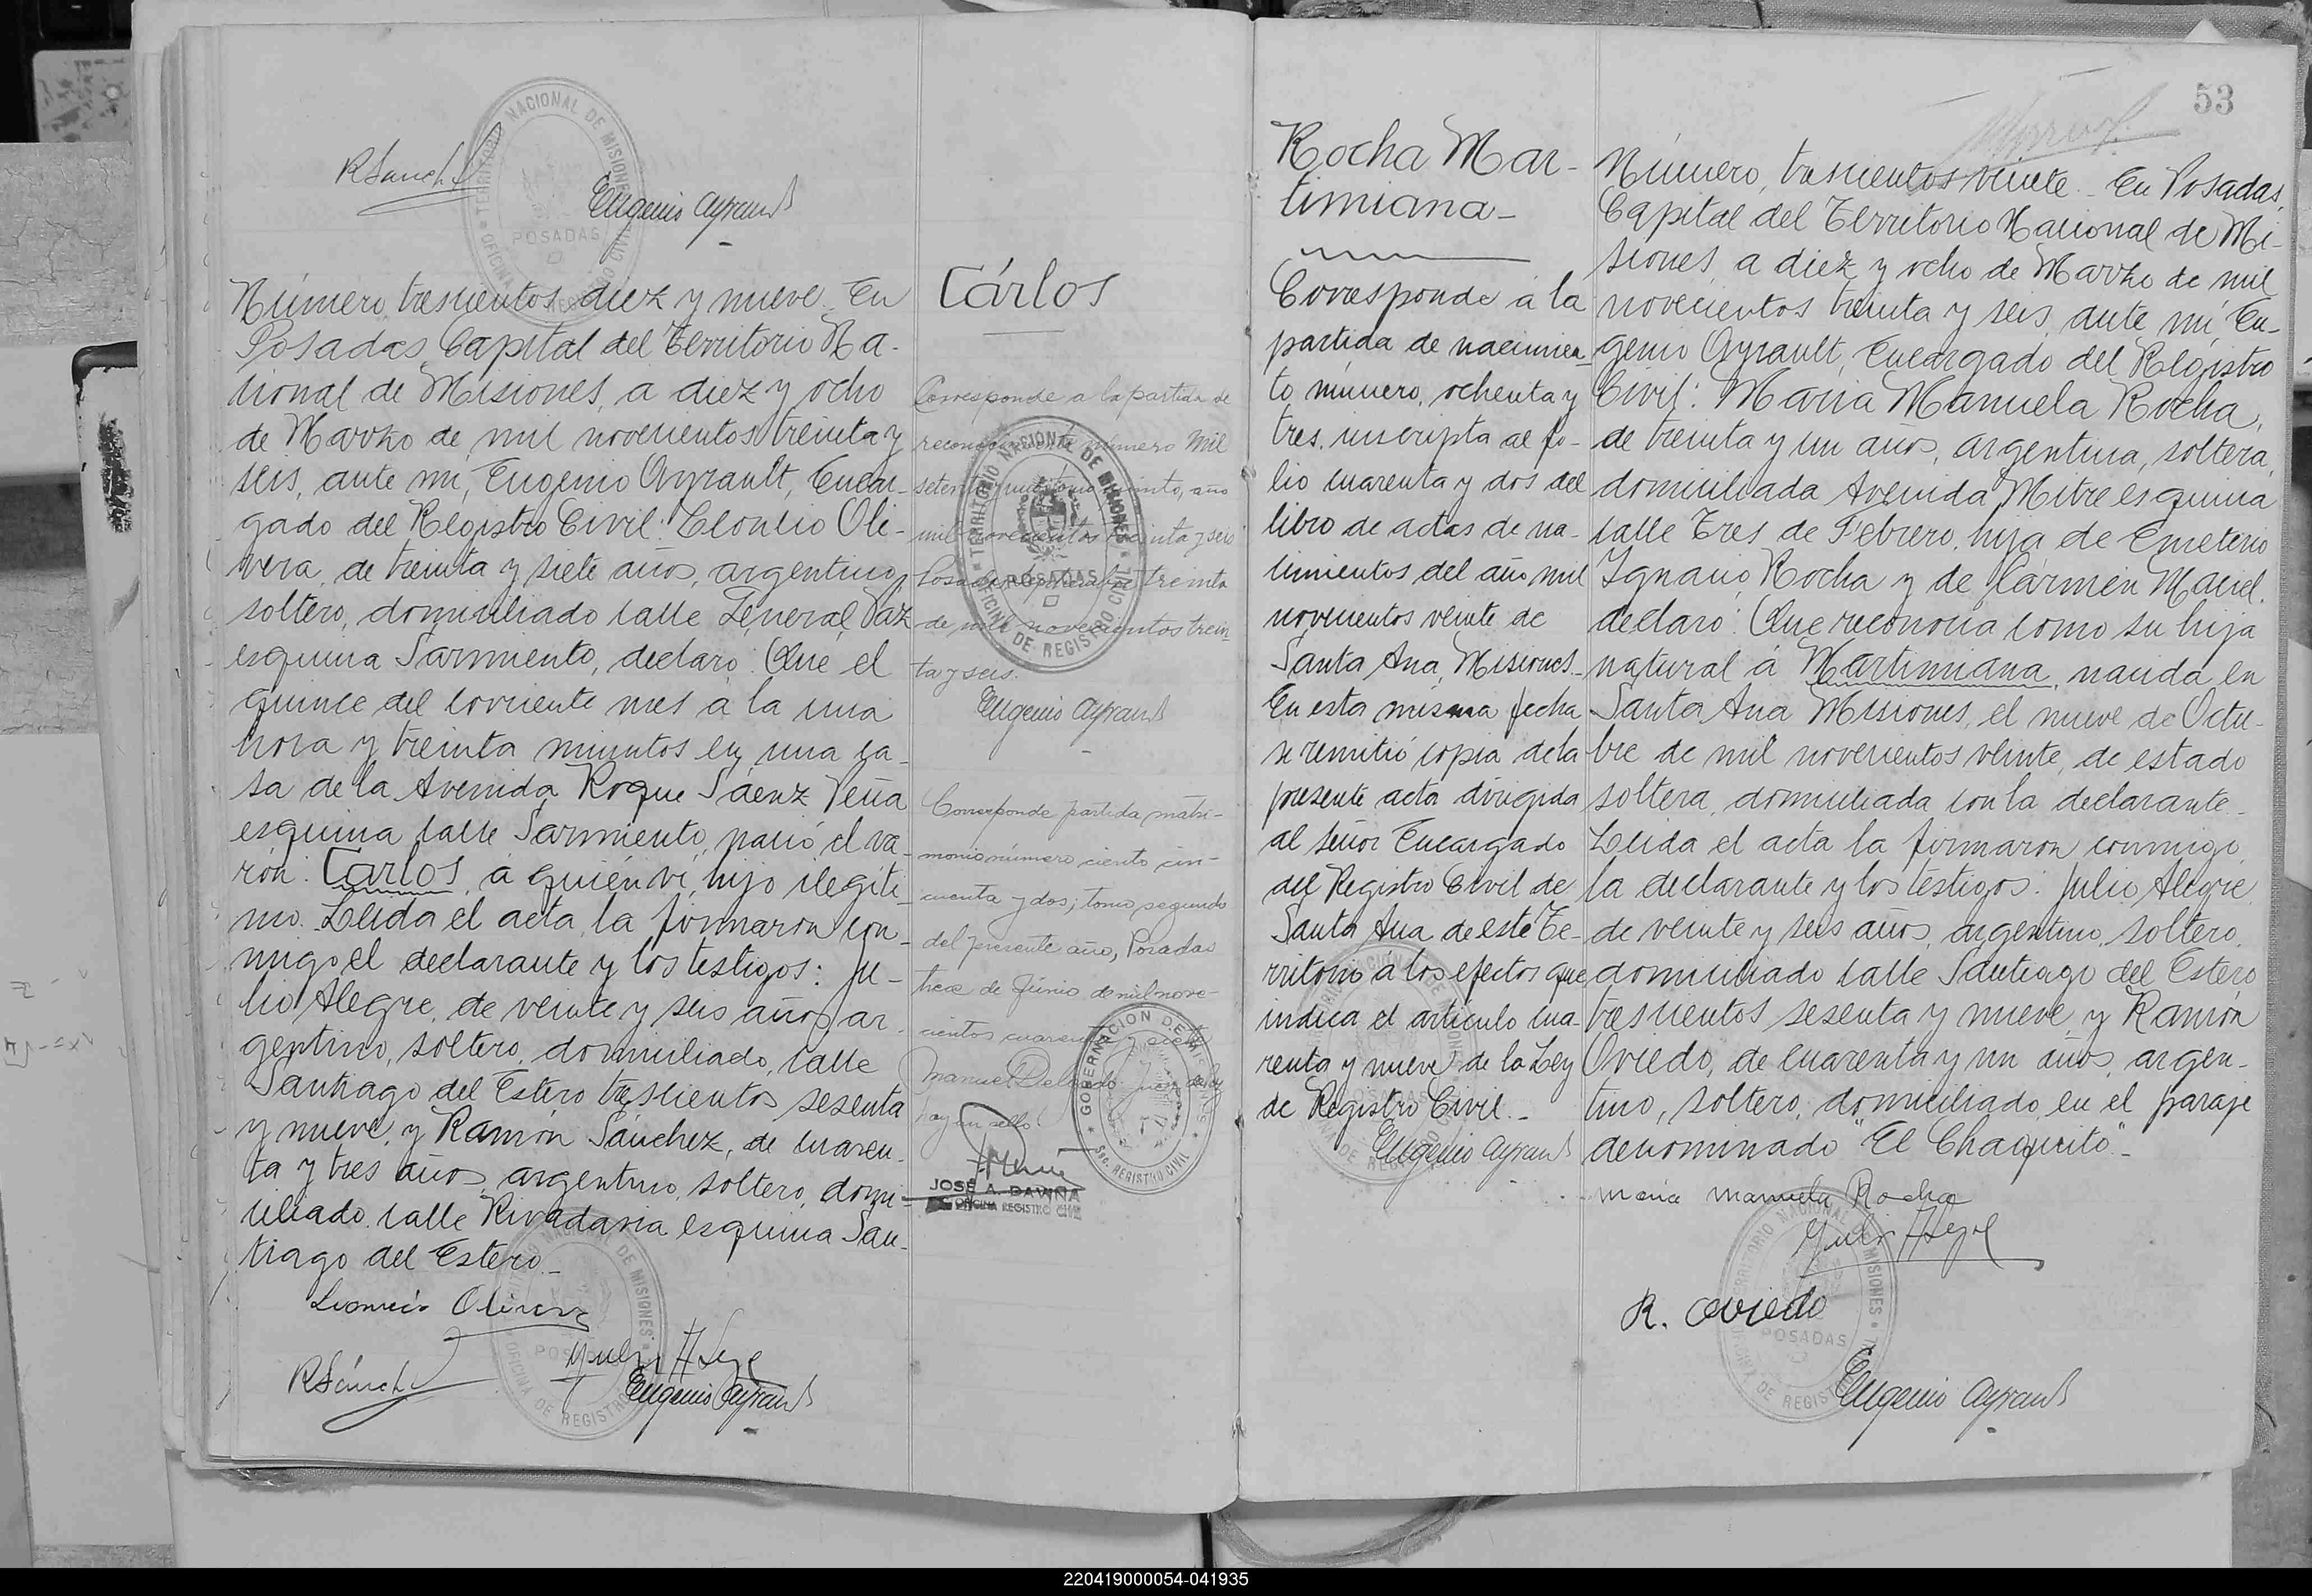 TERRITORIO NACIONAL DE MISIONES
OFICINA DE REGISTRO CIVIL
POSADAS
RSanch
Eugenio Ayrault
Número, trescientos diez y nueve. En
Posadas, Capital del Territorio Na-
cional de Misiones, a diez y ocho
de Marzo de mil novecientos treinta y
seis, ante mi, Eugenio Ayrault, Encar-
gado del Registro Civil: Leoncio Oli-
vera, de treinta y siete años, argentino,
soltero, domiciliado calle General Paz
esquina Sarmiento, declaró: Que el
quince del corriente mes á la una
hora y treinta minutos en una ca-
sa de la Avenida Roque Sáenz Peña
esquina calle Sarmiento, nació el va-
rón: Carlos, á quién ví, hijo ilegíti-
mo. Leída el acta, la firmaron con-
migo el declarante y los testigos: Ju-
lio Alegre, de veinte y seis años, ar-
gentino, soltero, domiciliado, calle
Santiago del Estero trescientos sesenta
y nueve, y Ramón Sánchez, de cuaren-
ta y tres años, argentino, soltero, domi-
ciliado calle Rivadavia esquina San-
tiago del Estero._
Leoncio Olivera
RSánch
Julio Alegre
Eugenio Ayrault
Cárlos
Corresponde a la partida de
reconoc número mil
seten tomo quinto, año
mil novecientos treinta y seis
Posadas, treinta
de mil novecientos trein-
ta y seis.
Eugenio Ayrault
TERRITORIO NACIONAL DE MISIONES
OFICINA DE REGISTRO CIVIL
POSADAS
Corresponde partida matri-
monio número ciento cin-
cuenta y dos; tomo segundo
del presente año, Posadas
trece de Júnio de mil nove-
cientos cuarenta y siete
Manuel Delgado Juez de Paz
hay un sello
GOBERNACION DE MISIONES
Sec. REGISTRO CIVIL
JOSÉ A. DAVIÑA
OFICINA REGISTRO CIVIL
53
Rocha Mar-
timiana_
Corresponde á la
partida de nacimien-
to, número, ochenta y
tres, inscripta al fo-
lio cuarenta y dos del
libro de actas de na-
cimientos del año mil
novecientos veinte de
Santa Ana, Misiones._
En esta misma fecha
se remitió copia de la
presente acta dirigida
al señor Encargado
del Registro Civil de
Santa Ana de este Te-
rritorio á los efectos que
indica el artículo cua-
renta y nueve de la Ley
de Registro Civil._
Eugenio Ayrault
Número, trescientos veinte._ En Posadas,
Capital del Territorio Nacional de Mi-
siones, a diez y ocho de Marzo de mil
novecientos treinta y seis, ante mi, Eu-
genio Ayrault, Encargado del Registro
Civil: María Manuela Rocha,
de treinta y un años, argentina, soltera,
domiciliada Avenida Mitre esquina
calle Tres de Febrero, hija de Emeterio
Ignacio Rocha y de Cármen Maciel,
declaró: Que reconocía como su hija
natural á Martimiana, nacida en
Santa Ana Misiones, el nueve de Octu-
bre de mil novecientos veinte, de estado
soltera, domiciliada con la declarante._
Leída el acta la firmaron conmigo,
la declarante y los testigos: Julio Alegre,
de veinte y seis años, argentino, soltero,
domiciliado calle Santiago del Estero
trescientos sesenta y nueve, y Ramón
Oviedo, de cuarenta y un años, argen-
tino, soltero, domiciliado en el paraje
denominado "El Chaquito"._
maria manuela Rocha
Julio Alegre
R. Oviedo
TERRITORIO NACIONAL DE MISIONES
POSADAS
Eugenio Ayrault
220419000054-041935